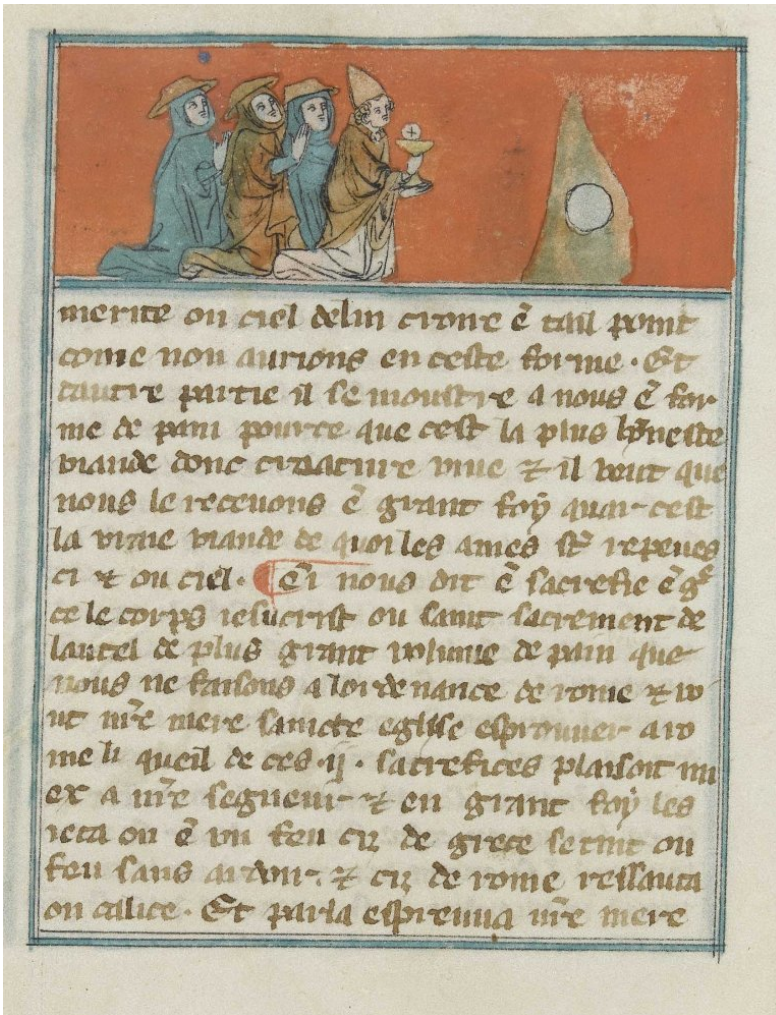 merite ou ciel de lui croire ē tail point
come nou aurions en ceste forme · Et
dautre partie il se moustre a nous ē for
me de pain pource que cest la plus hōneste
viande donc criature viue ⁊ il veut que
nous le receuons ē grant foy quar cest
la uraie viande de quoi les ames sōt repeues
ci ⁊ ou ciel · ¶ nous dit ē sacrefie ē
ce le corps iesucrist ou saint sacrement de
lautel de plus grant volume de pain que
nous ne faisons a lordenance de rome ⁊ vo
ut nr̄e mere saincte eglise esprouuer a ro
me li queil de ces ·ij· sacrefices plaisoit mi
ex a nr̄e segneur ⁊ en grant foy les
ieta on ē vn feu cilz de grece se tint ou
feu sans ardoir · ⁊ cilz de rome ressauta
ou calice · Et par la espreuua nr̄e mere